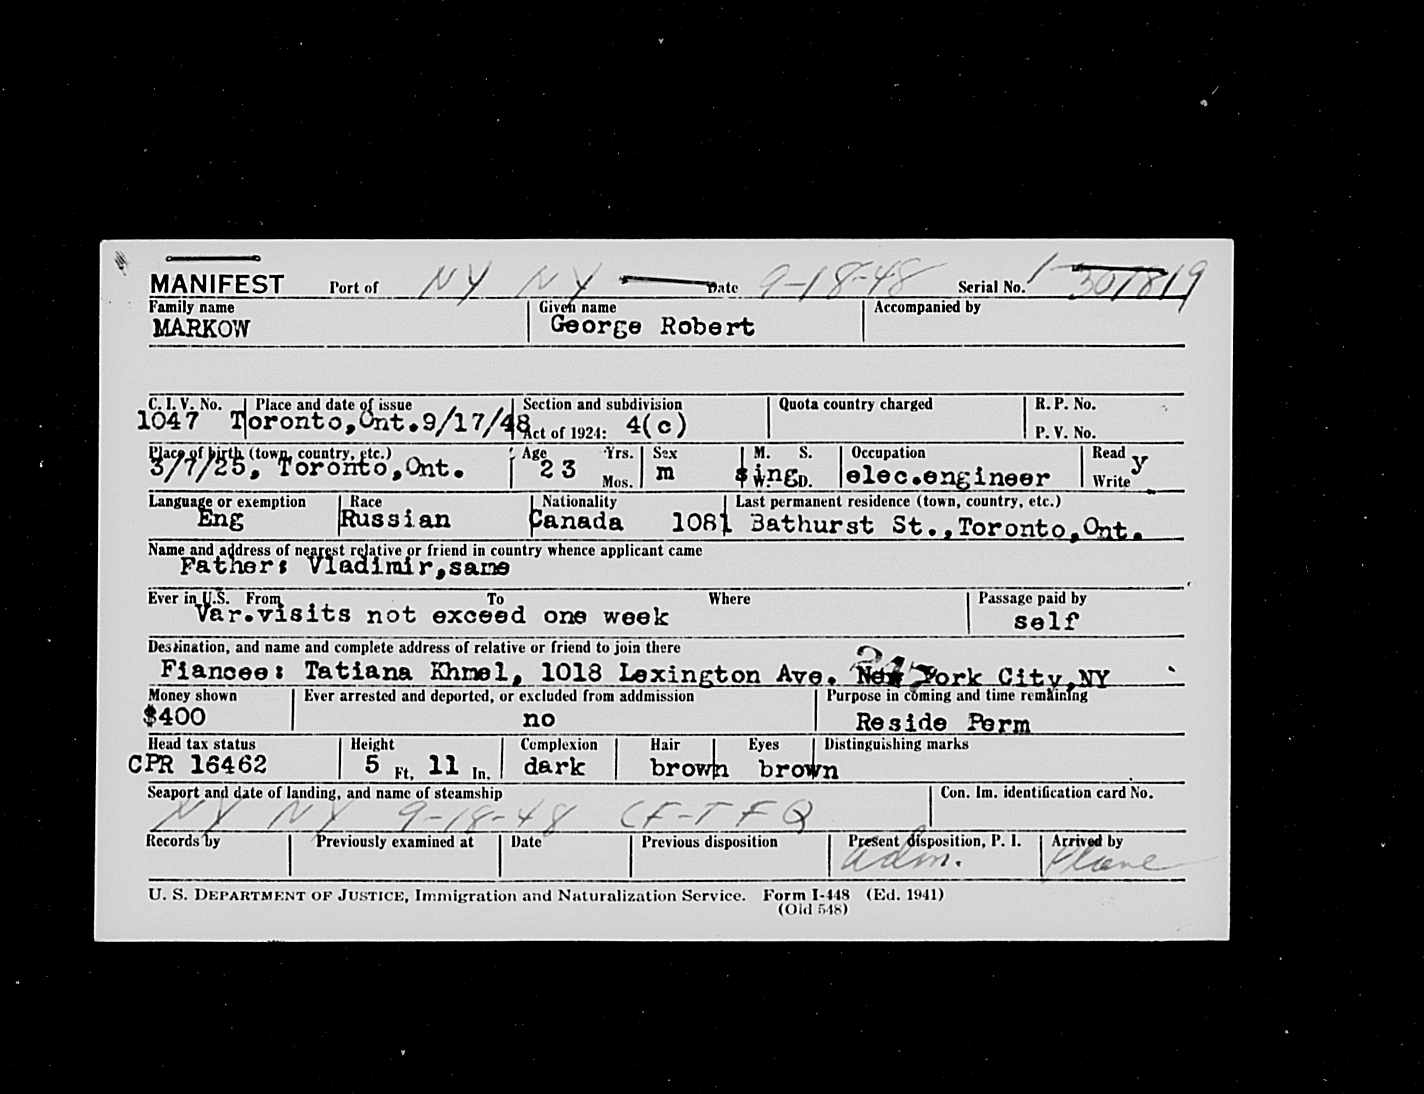 MANIFEST Port of NY NY Date 9-18-48 Serial No. 1-301819
Family name Given name Accompanied by
MARKOW George Robert
C. I. V. No. Place and date of issue Section and subdivision Quota country charged R. P. No.
1047 Toronto,Ont.9/17/48 Act of 1924: 4(c) P. V. No.
Place of birth (town, country, etc.) Age Yrs. Sex M. S. Occupation Read y
3/7/25, Toronto,Ont. 23 Mos. m sing W. D. elec.engineer Write
Language or exemption Race Nationality Last permanent residence (town, country, etc.)
Eng Russian Canada 1081 Bathurst St.,Toronto,Ont.
Name and address of nearest relative or friend in country whence applicant came
Father: Vladimir,same
Ever in U.S. From To Where Passage paid by
Var.visits not exceed one week self
Destination, and name and complete address of relative or friend to join there
Fiancee: Tatiana Khmel, 1018 Lexington Ave. New York City,NY
Money shown Ever arrested and deported, or excluded from addmission Purpose in coming and time remaining
$400 no Reside Perm
Head tax status Height Complexion Hair Eyes Distinguishing marks
CPR 16462 5 Ft. 11 In. dark brown brown
Seaport and date of landing, and name of steamship Con. Im. identification card No.
NY NY 9-18-48 CF-TFQ
Records by Previously examined at Date Previous disposition Present disposition, P. I. Arrived by
adm. Plane
U. S. DEPARTMENT OF JUSTICE, Immigration and Naturalization Service. Form I-448 (Ed. 1941)
(Old 548)